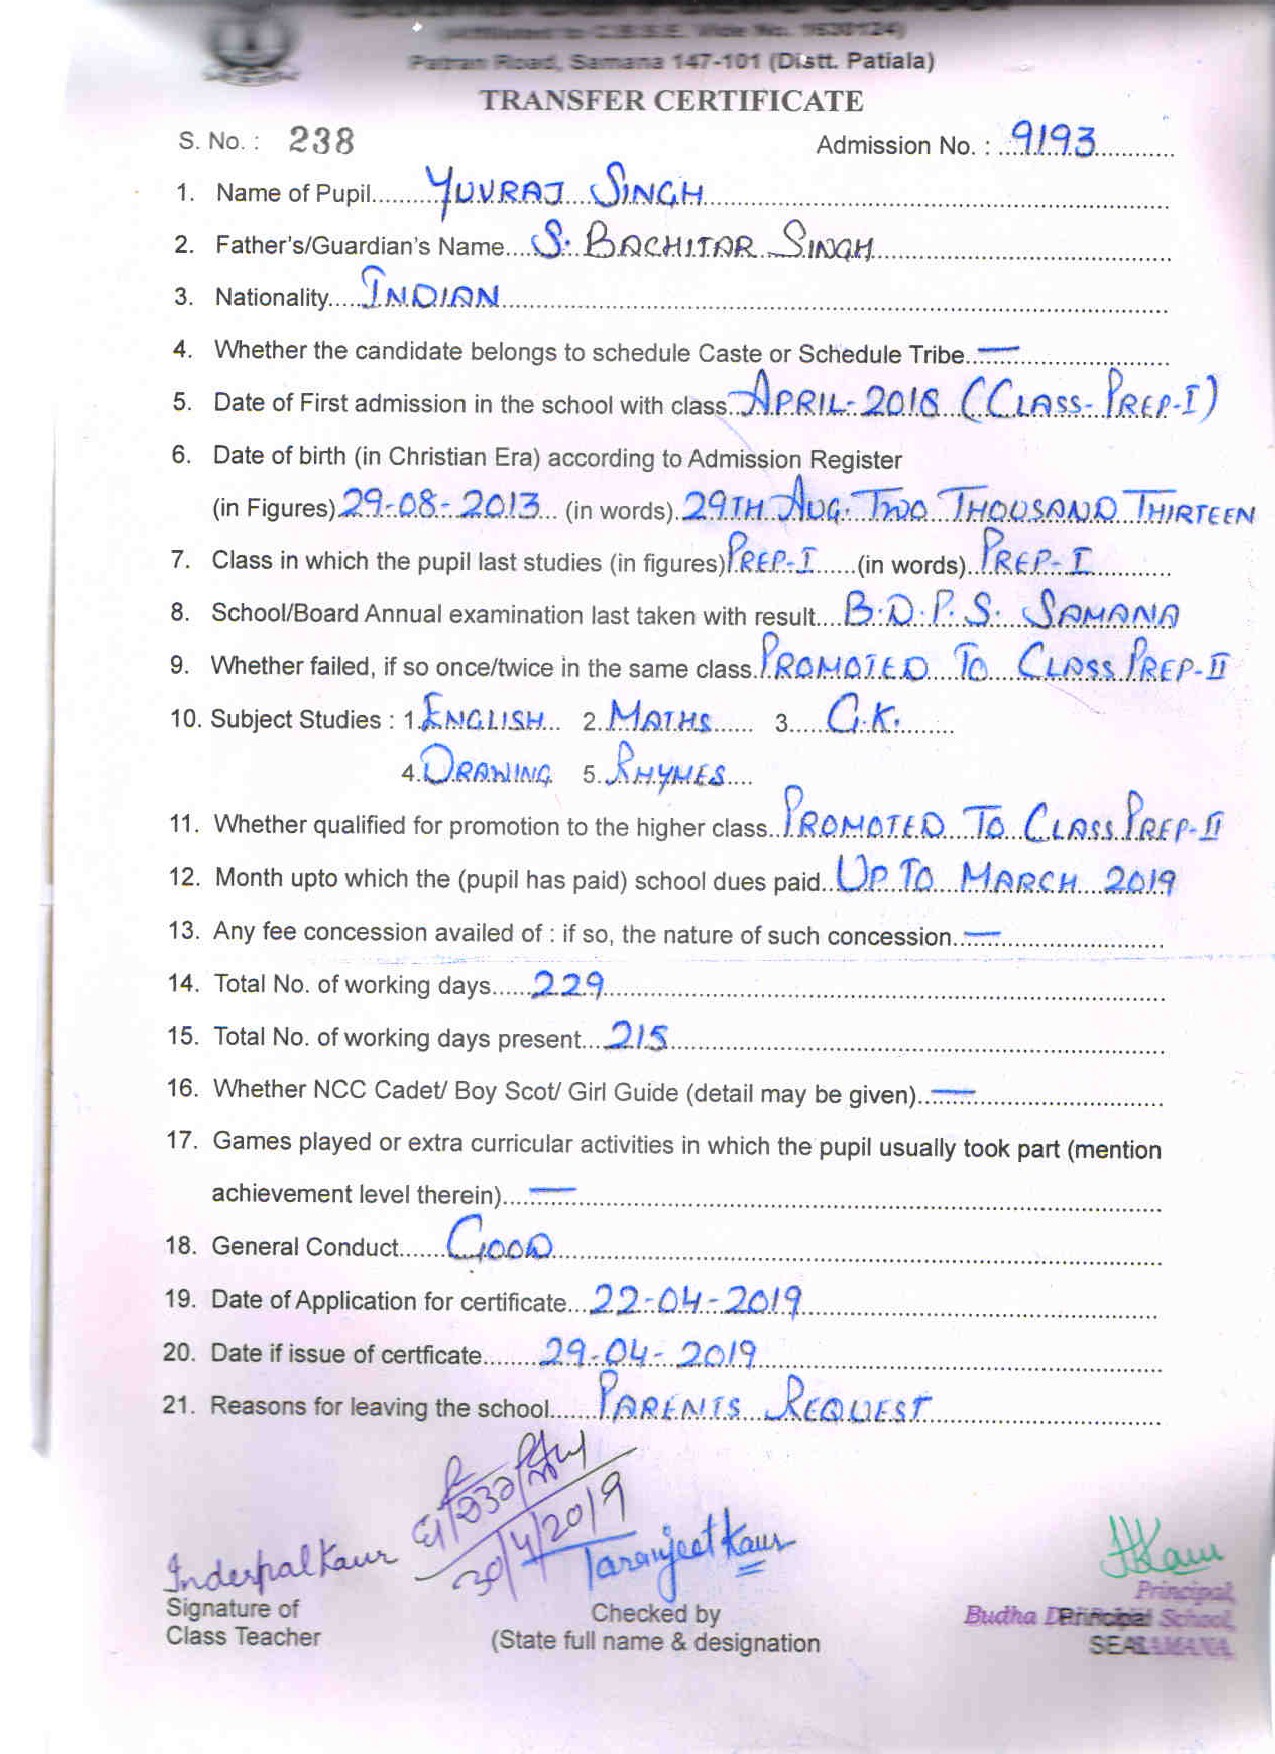 (Affiliated to C.B.S.E. Vide No. 1630124)
Patran Road, Samana 147-101 (Distt. Patiala)
TRANSFER CERTIFICATE
S. No. : 238 Admission No. : 9193
1. Name of Pupil YUVRAJ SINGH
2. Father's/Guardian's Name S. BACHITAR SINGH
3. Nationality INDIAN
4. Whether the candidate belongs to schedule Caste or Schedule Tribe. —
5. Date of First admission in the school with class APRIL-2018 (CLASS-PREP-I)
6. Date of birth (in Christian Era) according to Admission Register
(in Figures) 29-08-2013 (in words) 29TH AUG. TWO THOUSAND THIRTEEN
7. Class in which the pupil last studies (in figures) PREP-I (in words) PREP-I
8. School/Board Annual examination last taken with result B.D.P.S. SAMANA
9. Whether failed, if so once/twice in the same class PROMOTED TO CLASS PREP-II
10. Subject Studies : 1. ENGLISH 2. MATHS 3. G.K.
4. DRAWING 5. RHYMES
11. Whether qualified for promotion to the higher class PROMOTED TO CLASS PREP-II
12. Month upto which the (pupil has paid) school dues paid UP TO MARCH 2019
13. Any fee concession availed of : if so, the nature of such concession —
14. Total No. of working days 229
15. Total No. of working days present 215
16. Whether NCC Cadet/ Boy Scot/ Girl Guide (detail may be given) —
17. Games played or extra curricular activities in which the pupil usually took part (mention
achievement level therein) —
18. General Conduct GOOD
19. Date of Application for certificate 22-04-2019
20. Date if issue of certficate 29-04-2019
21. Reasons for leaving the school PARENTS REQUEST
30/4/2019
Inderpal Kaur Taranjeet Kaur
Signature of Checked by Principal
Class Teacher (State full name & designation SEAL
Principal,
Budha School,
SAMANA